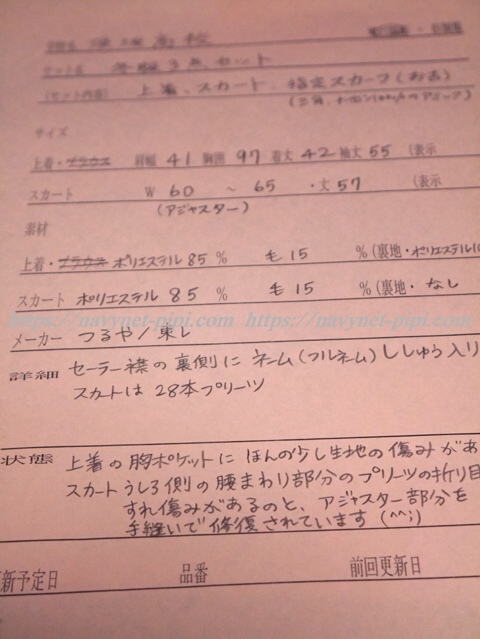 セット名 冬服3点セット
(セット内容) 上着、スカート、指定スカーフ(お古)
サイズ
上着・ブラウス 肩幅 41 胸囲 97 着丈 42 袖丈 55 (表示
スカート W 60 ～ 65 ・丈 57 (表示
(アジャスター)
素材
上着・ブラウス ポリエステル 85 % 毛 15 % (裏地・ポリエステル
スカート ポリエステル 85 % 毛 15 % (裏地・なし
https://navynet-pipi.com https://navynet-pipi.com
メーカー つるや/東レ
詳細 セーラー襟の裏側に ネーム(フルネーム)ししゅう入り
スカートは 28本プリーツ
状態 上着の胸ポケットに ほんの少し生地の傷みがあ
スカートうしろ側の腰まわり部分のプリーツの折り目
すれ傷みがあるのと、アジャスター部分を
手縫いで修復されています(^^;)
新予定日 品番 前回更新日